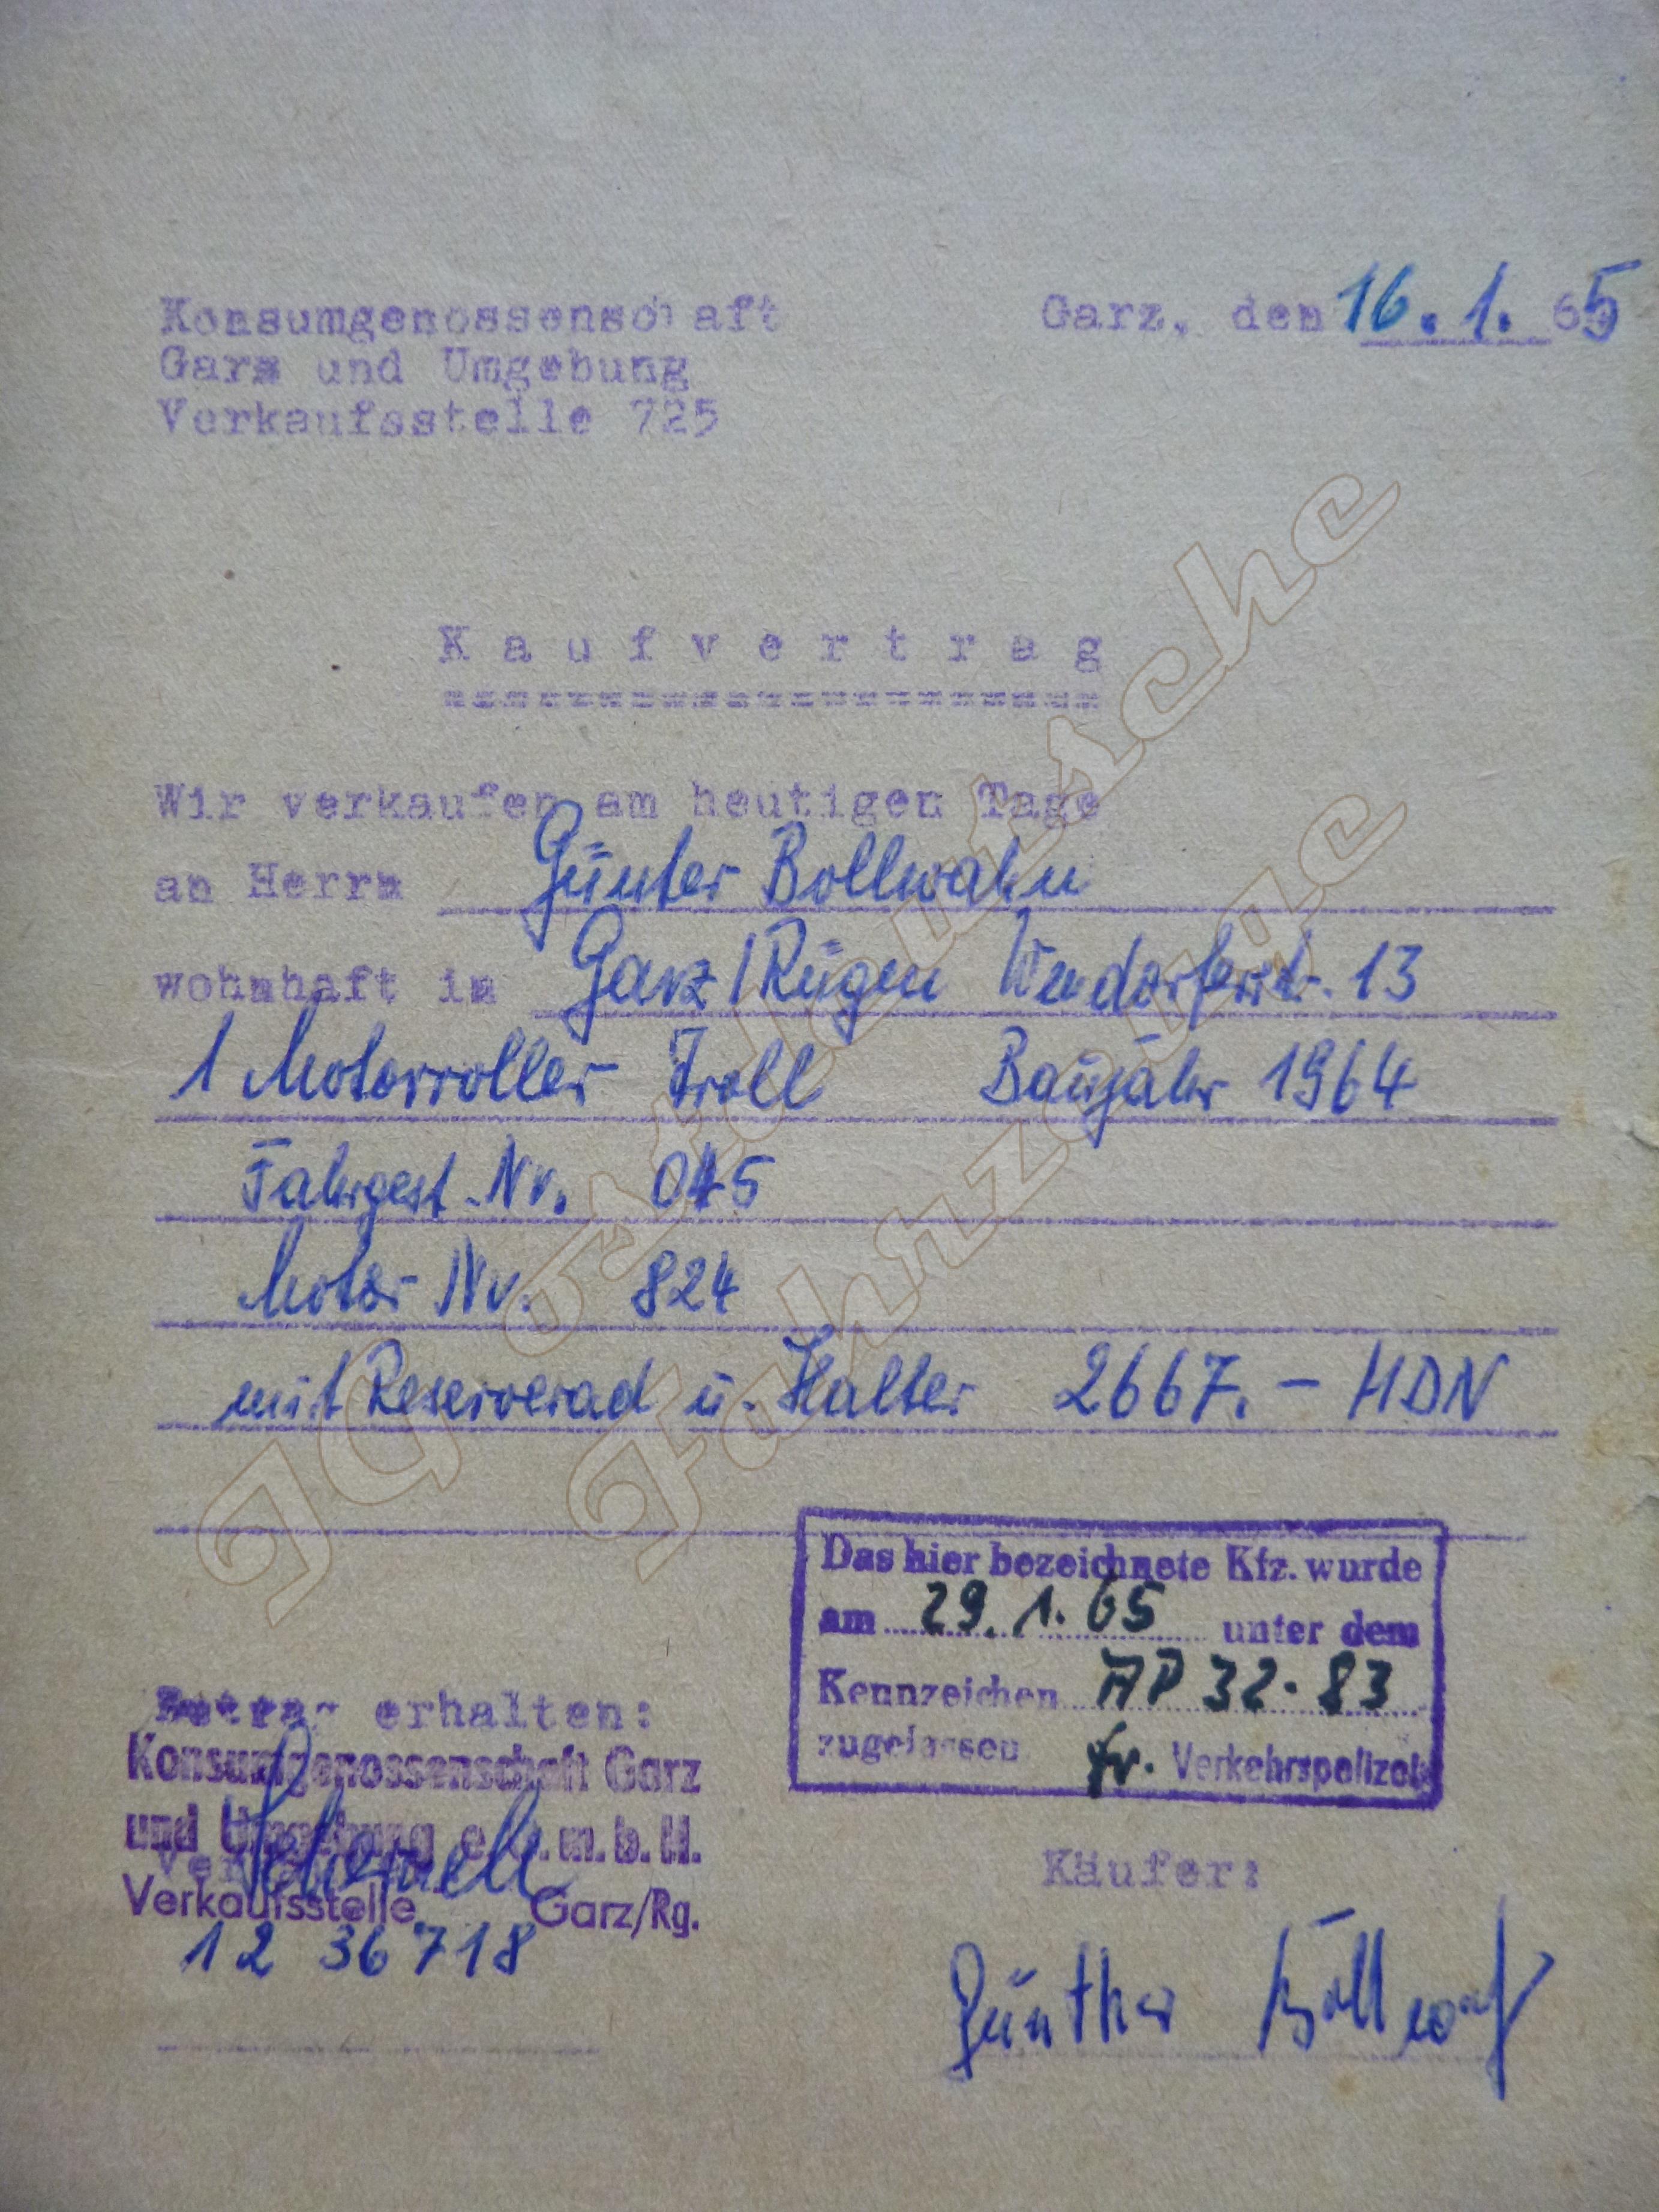 Konsumgenossenschaft Garz, den 16.1.65
Garz und Umgebung
Verkaufsstelle 725
Kaufvertrag
Wir verkaufen am heutigen Tage
an Herrn Günter Bollwahn
wohnhaft in Garz/Rügen Wendorferstr. 13
1 Motorroller Troll Baujahr 1964
Fahrgest.-Nr. 045
Motor Nr. 824
mit Reserverad u. Halter 2667.- MDN
Das hier bezeichnete Kfz. wurde
am 29.1.65 unter dem
Kennzeichen AP 32-83
zugelassen fr. Verkehrspolizei
Betrag erhalten:
Konsumgenossenschaft Garz
und Umgebung e.G.m.b.H.
Verkaufsstelle Garz/Rg.
12 36718
Käufer:
Günther Bollwahn
IG Ostdeutsche
Fahrzeuge